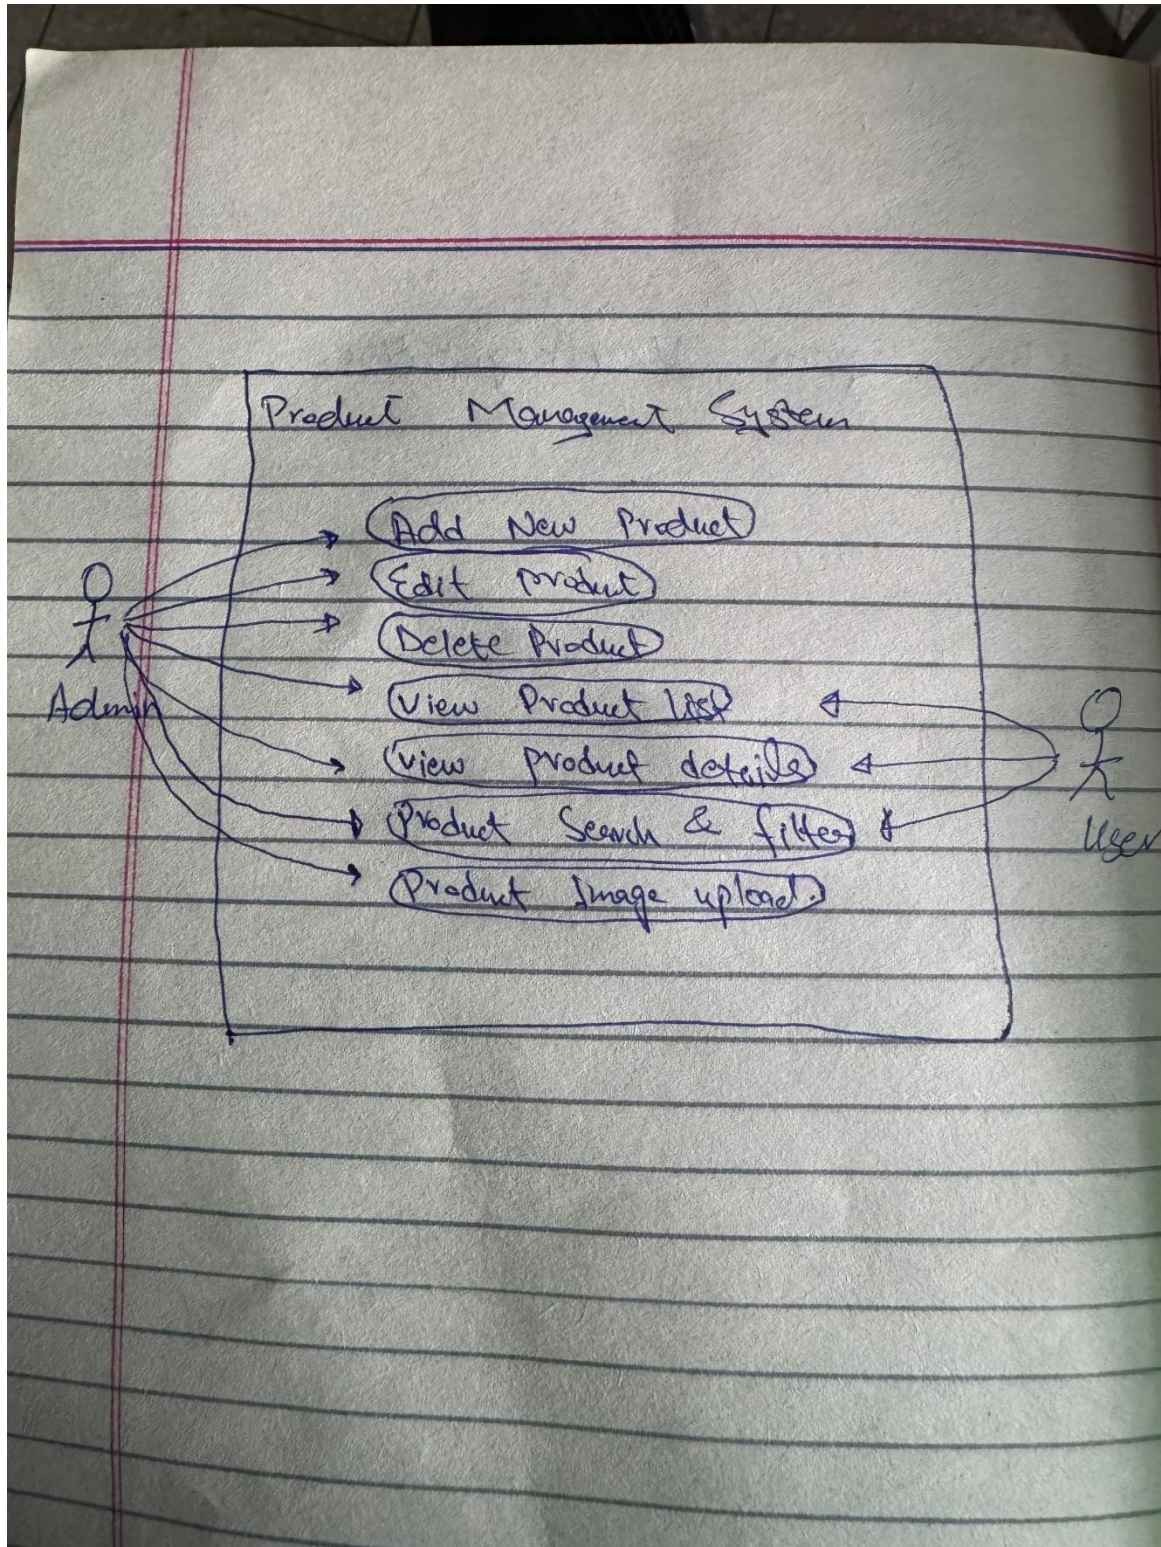 Product Management System
Add New Product
Edit product
Delete Product
Admin
View Product List
View product details
Product Search & filter
User
Product Image upload.